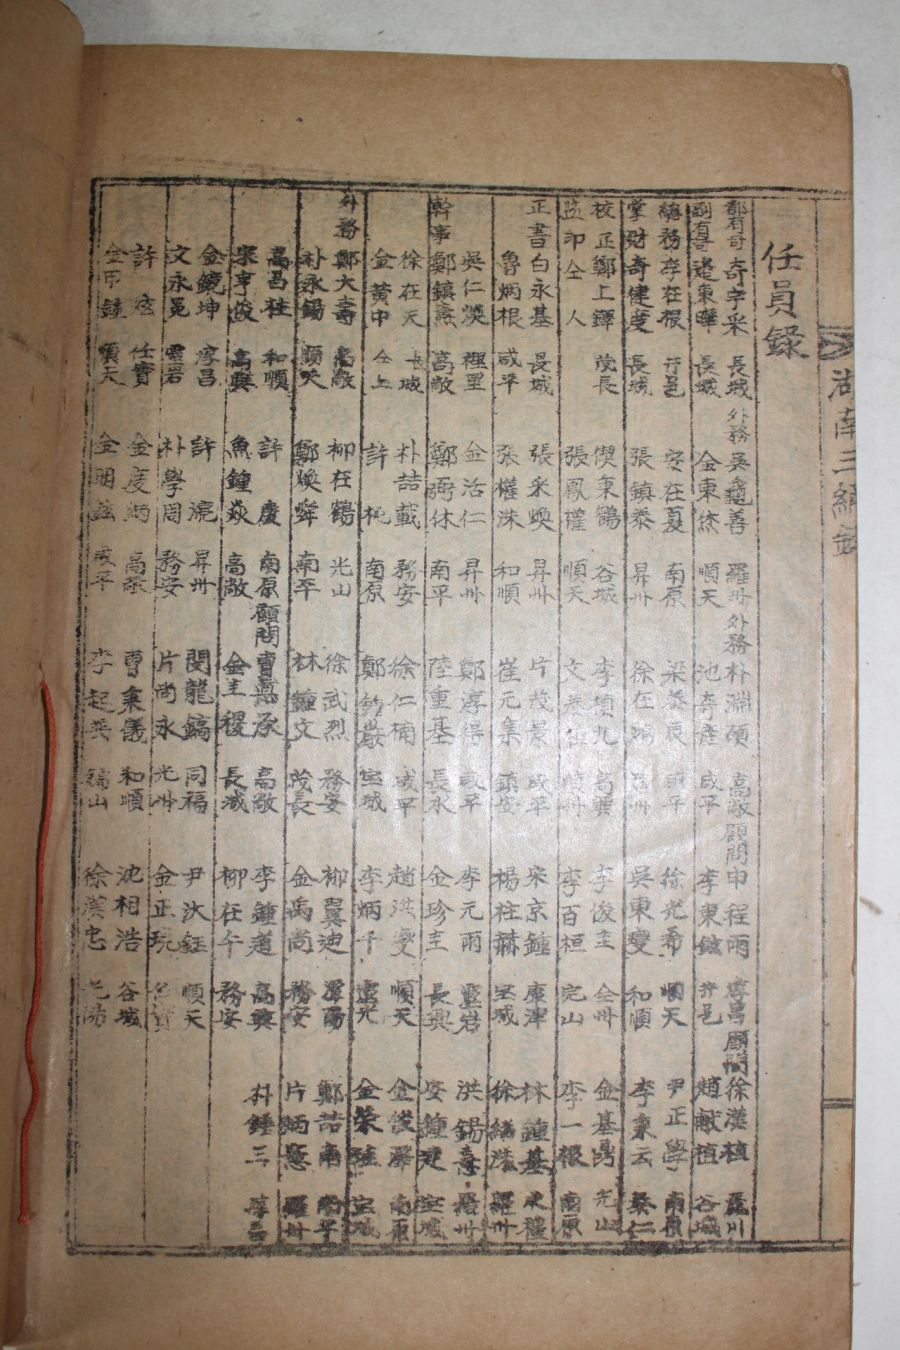 湖南三綱錄
任員錄
都有司 奇宇采 長城 外務 吳龜善 羅州 外務 朴淵碩 高敞 顧問 申程雨 淳昌 顧問 徐漢植 麗川
副有司 邊東曄 長城 金東烋 順天 池奇彦 咸平 李東鉉 井邑 趙猷植 谷城
總務 李在根 井邑 安在夏 南原 梁 咸平 徐光希 順天 尹正學 南原
掌財 奇健度 長城 張鎮泰 昇州 徐在 州 吳東燮 和順 李秉云 泰仁
校正 鄭上鐸 茂長 偰秉鶴 谷城 李煩九 高興 李俊圭 仝州 金基勇 光山
監印 仝人 張鳳權 順天 文 州 李百桓 完山 李一根 南原
正書 白永基 長城 張采煥 昇州 片茂景 咸平 宋京鍾 康津 林鍾基 木
魯炳根 咸平 張權洙 和順 崔元集 鎮安 楊柱赫 宝城 徐 洙 羅州
吳仁煐 裡里 金洁仁 昇州 鄭淳得 咸平 李元雨 靈岩 洪錫憙 羅州
幹事 鄭鎮憲 高敞 鄭弼休 南平 陸重基 長水 金珍圭 長興 安鍾建 宝城
徐在天 長城 朴喆載 務安 徐仁楠 咸平 趙洪燮 順天 金 南原
金黃中 仝上 許 南原 鄭 巖 宝城 李炳千 靈光 金榮 宝城
外務 鄭大壽 高敞 柳在鶴 光山 徐武烈 務安 柳翼迪 潭陽 鄭喆南 南平
朴永錫 順天 鄭煥舜 南平 林鍾文 茂長 金禹尚 務安 片炳憲 羅州
高昌柱 和順 許慶 南原 顧問 曺憙承 高敞 李鍾道 高興 朴鍾三 淳昌
宋亨俊 高興 魚鍾焱 高敞 金圭稷 長城 柳在午 務安
金鏡坤 淳昌 許 昇州 閔龍鎬 同福 尹汰鈺 順天
文永冕 靈岩 朴學周 務安 片尚永 光州 金正琓
許炫 任實 金度炳 高敞 曺秉義 和順 沈相浩 谷城
金 順天 金明鉉 咸平 李起英 山 徐漢忠